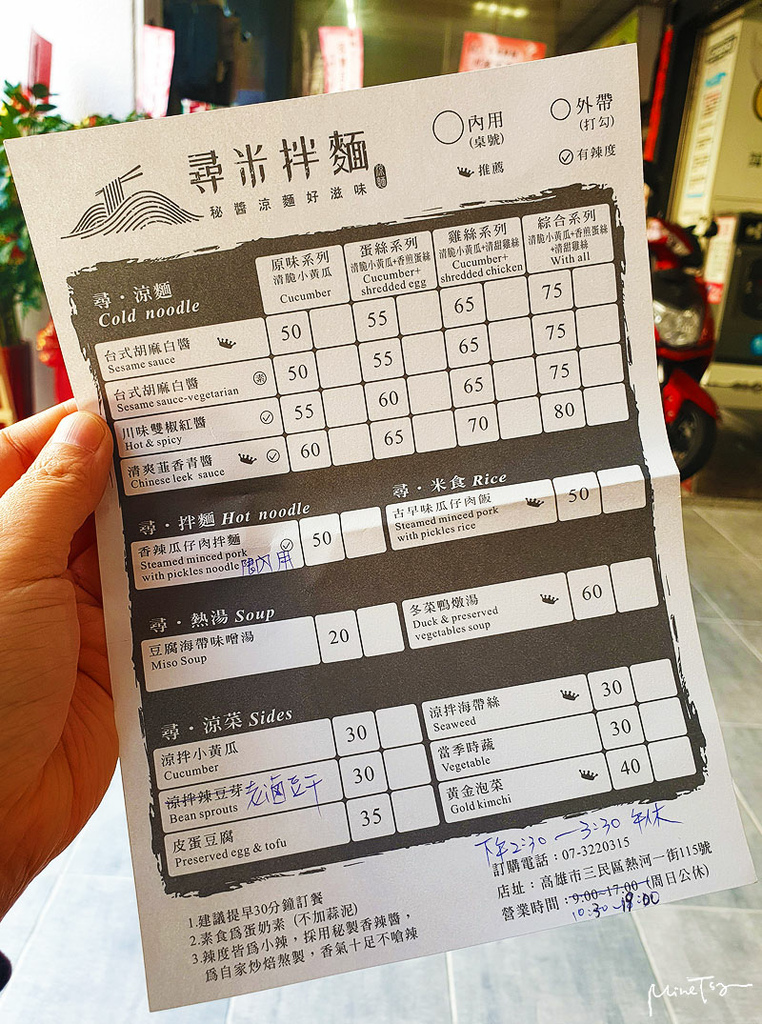 尋米拌麵
原麵
秘醬涼麵好滋味
內用
(桌號)
外帶
(打勾)
推薦
有辣度
尋・涼麵
Cold noodle
原味系列
清脆小黃瓜
Cucumber
蛋絲系列
清脆小黃瓜+香煎蛋絲
Cucumber+
shredded egg
雞絲系列
清脆小黃瓜+清甜雞絲
Cucumber+
shredded chicken
綜合系列
清脆小黃瓜+香煎蛋絲
+清甜雞絲
With all
台式胡麻白醬
Sesame sauce
50 55 65 75
台式胡麻白醬 素
Sesame sauce-vegetarian
50 55 65 75
川味雙椒紅醬
Hot & spicy
55 60 65 75
清爽韮香青醬
Chinese leek sauce
60 65 70 80
尋・拌麵 Hot noodle
香辣瓜仔肉拌麵
Steamed minced pork
with pickles noodle 限內用
50
尋・米食 Rice
古早味瓜仔肉飯
Steamed minced pork
with pickles rice
50
尋・熱湯 Soup
豆腐海帶味噌湯
Miso Soup
20
冬菜鴨燉湯
Duck & preserved
vegetables soup
60
尋・涼菜 Sides
涼拌小黃瓜
Cucumber
30
涼拌辣豆芽 老滷豆干
Bean sprouts
30
皮蛋豆腐
Preserved egg & tofu
35
涼拌海帶絲
Seaweed
30
當季時蔬
Vegetable
30
黃金泡菜
Gold kimchi
40
1.建議提早30分鐘訂餐
2.素食為蛋奶素 (不加蒜泥)
3.辣度皆為小辣，採用秘製香辣醬，
為自家炒焙熬製，香氣十足不嗆辣
下午2:30－3:30 午休
訂購電話：07-3220315
店址：高雄市三民區熱河一街115號
營業時間：9:00-17:00 (周日公休)
10:30-19:00
MineTsy